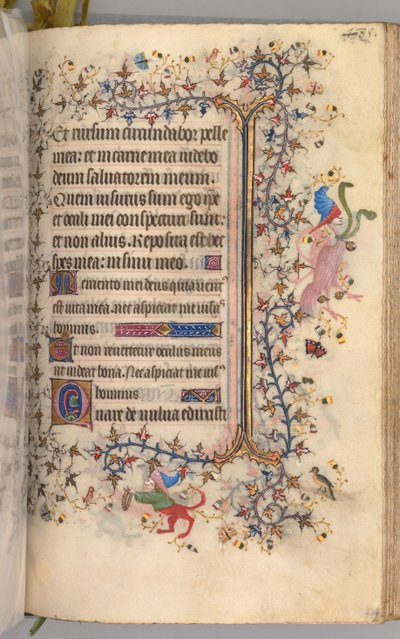 Et rursum circundabor pelle
mea: et in carne mea videbo
deum salvatorem meum:
Quem visurus sum ego ipse
et oculi mei conspecturi sunt:
et non alius. Reposita est hec
spes mea: in sinu meo.
Memento mei deus quia vent
est vita mea. Nec aspiciat me visus
hominis.
Et non revertetur oculus meus
ut videat bona. Nec aspiciat me vis
hominis
Quare de vulva eduxisti